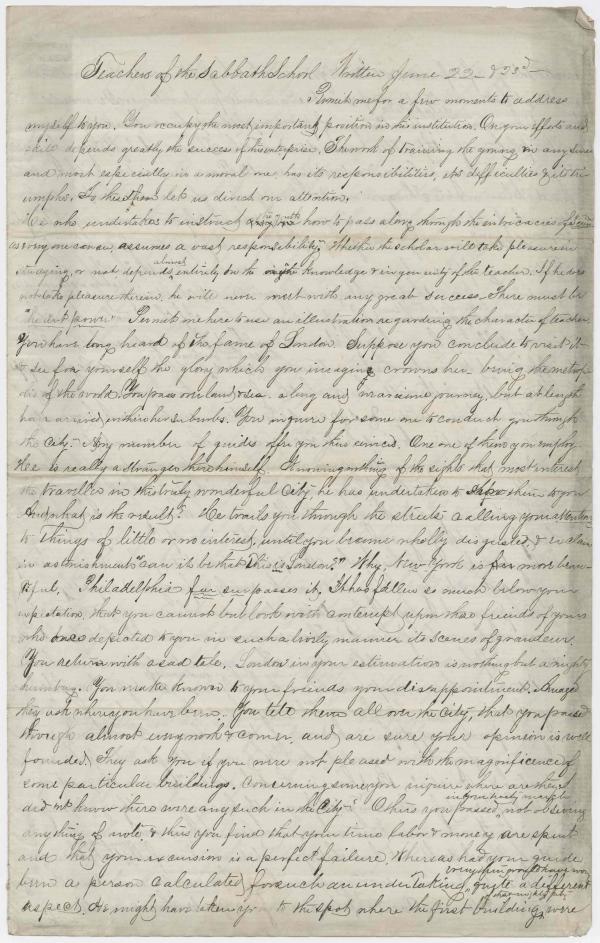 Teachers of the Sabbath School Written June 22 & 23d
Permit me for a few moments to address
myself to you. You occupy the most important position in this institution. On your efforts and
skill depends greatly the success of this enterprise. The work of training the young in any sense
and most especially in a moral one, has its responsibilities, its difficulties & its tri-
umphs. To these then let us direct our attention.
He who undertakes to instruct how to pass along through the intricacies of
as every one can see, assumes a vast responsibility. Whether the scholar will take pleasure in
or not depends almost entirely on the knowledge & ingenuity of the teacher. If he does
not take pleasure therein, he will never meet with any great success. There must be
Permit me here to use an illustration regarding the character of teacher.
You have long heard of the fame of London. Suppose you conclude to visit it
to see for yourself the glory which you imagine crowns her being the metrop-
olis of the world. You pass over land & sea along and wearisome journey, but at length
have arrived in her suburbs. You inquire for some one to conduct you through
the City. Any number of guides offer you their services. One of them you employ.
He is really a stranger there himself. Knowing nothing of the sights that most interest
the traveller in this truly wonderful City, he has undertaken to show them to you
And what is the result? He trails you through the streets calling your attention
to things of little or no interest, until you become wholly disgusted & exclaim
in astonishment "can it be that this is London?" Why, New York is far more beau-
tiful. Philadelphia far surpasses it. It has fallen so much below your
expectation, that you cannot but look with contempt upon those friends of yours
who once depicted to you in such a lively manner its scenes of grandeur.
You return with a sad tale. London in your estimation is nothing but a mighty
humbug. You make known to your friends your disappointment. Amazed
they ask where you have been. You tell them all over the City, that you passed
through almost every nook & corner, and are sure your opinion is well
founded. They ask you if you were not pleased with the magnificence of
some particular buildings. Concerning some you inquire where are they I
did n't know there were any such in the City. Others you passed not observing
anything of note. & thus you find that your time labor & money are spent
and that your excursion is a perfect failure. Whereas had your guide
been a person calculated for such an undertaking everything would have worn quite a different
aspect. He might have taken you to the spot where the first buildings were